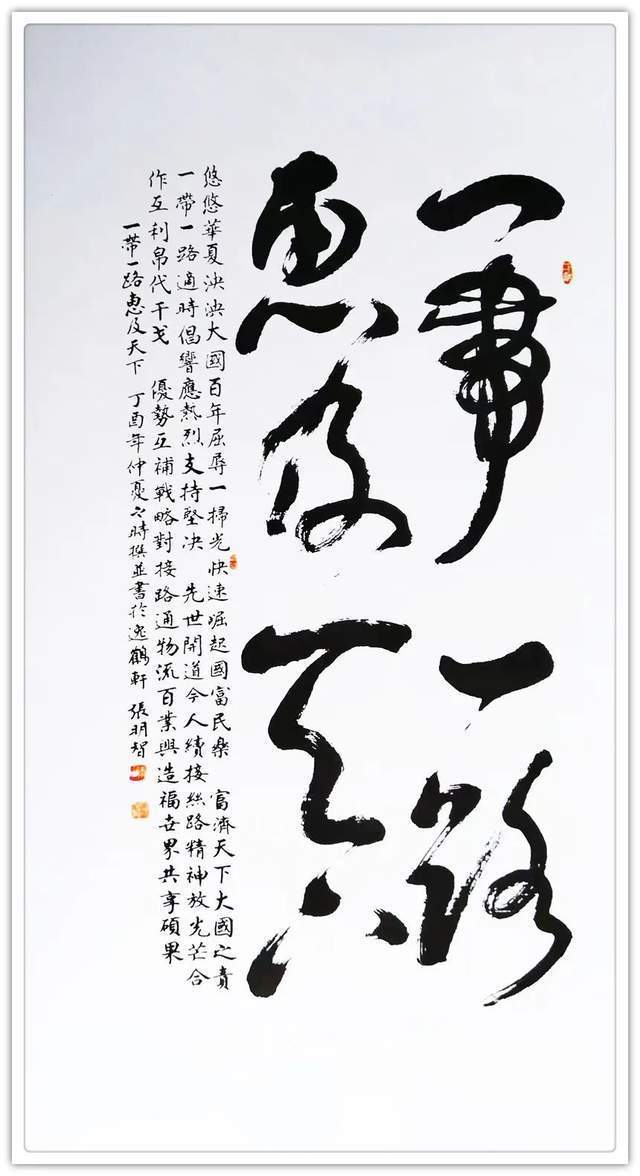 一帶一路
惠及天下
悠悠華夏泱泱大國百年屈辱一掃光快速崛起國富民樂 富濟天下大國之責
一帶一路適時倡響應熱烈支持堅決 先世開道今人續接絲路精神放光芒合
作互利帛代干戈 優勢互補戰略對接路通物流百業興造福世界共享碩果
一帶一路惠及天下 丁酉年仲夏之時撰並書於逸鶴軒 張明智